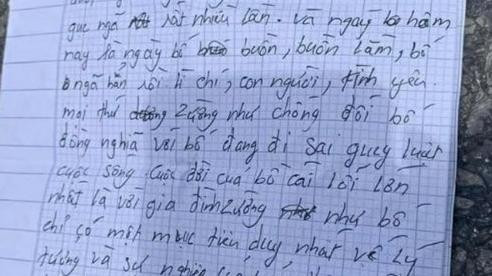 gục ngã rất nhiều lần. và ngay hôm
nay là ngày bố buồn, buồn lắm, bố
ngã hẳn rồi lí chí, con người, tình yêu.
mọi thứ dường như chống đối bố
đồng nghĩa với bố đang đi sai quy luật
cuộc sống cuộc đời của bố cái lỗi lớn
nhất là với gia đình dường như bố
chỉ có một mục tiêu duy nhất về lý
tưởng và sự nghiệp